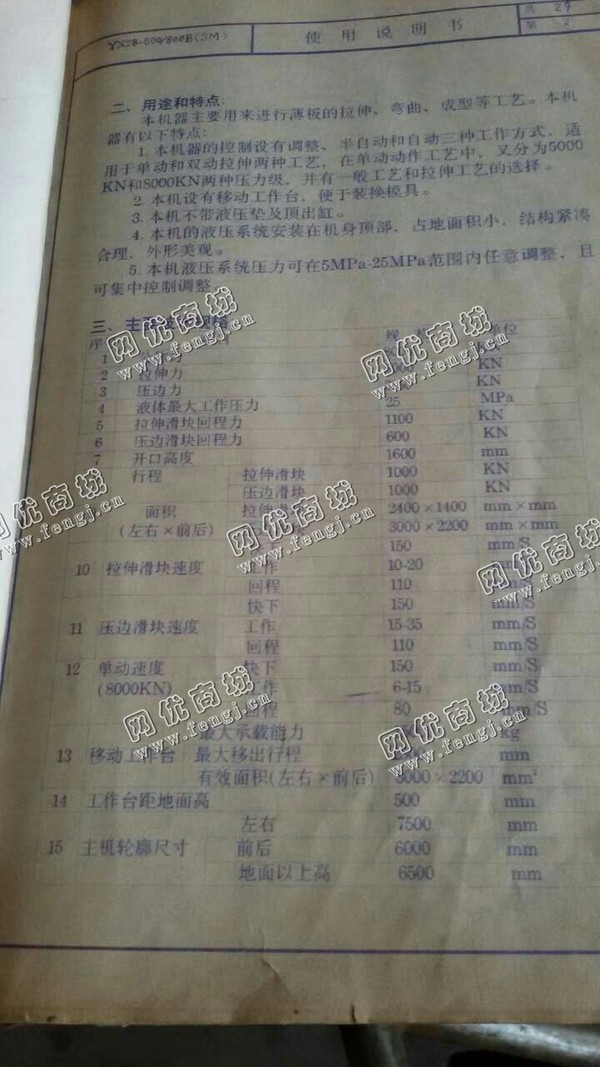 YX28-500/800B(SM) 使用说明书 共 27
第 2
二、用途和特点:
本机器主要用来进行薄板的拉伸、弯曲、成型等工艺。本机
器有以下特点:
1. 本机器的控制设有调整、半自动和自动三种工作方式, 适
用于单动和双动拉伸两种工艺, 在单动动作工艺中, 又分为5000
KN和8000KN两种压力级, 并有一般工艺和拉伸工艺的选择。
2. 本机设有移动工作台, 便于装换模具。
3. 本机不带液压垫及顶出缸。
4. 本机的液压系统安装在机身顶部、占地面积小, 结构紧凑
合理, 外形美观。
5. 本机液压系统压力可在5MPa-25MPa范围内任意调整, 且
可集中控制调整
三、主
序 规 单位
1 KN
2 拉伸力 KN
3 压边力
4 液体最大工作压力 25 MPa
5 拉伸滑块回程力 1100 KN
6 压边滑块回程力 600 KN
7 开口高度 1600 mm
行程 拉伸滑块 1000 KN
压边滑块 1000 KN
面积 拉伸 2400×1400 mm×mm
(左右×前后) 3000×2200 mm×mm
150 mm/S
10 拉伸滑块速度 工作 10-20
回程 110
快下 150 mm/S
11 压边滑块速度 工作 15-35 mm/S
回程 110 mm/S
12 单动速度 快下 150 mm/S
(8000KN) 工作 6-15 mm/S
回程 80 mm/S
最大承载能力 kg
13 移动工作台 最大移出行程 mm
有效面积(左右×前后) 3000×2200 mm²
14 工作台距地面高 500 mm
左右 7500 mm
15 主机轮廓尺寸 前后 6000 mm
地面以上高 6500 mm
网优商城
www.fengj.cn
网优商城
www.fengj.cn
网优商城
www.fengj.cn
网优商城
www.fengj.cn
网优商城
www.fengj.cn
网优商城
www.fengj.cn
网优商城
www.fengj.cn